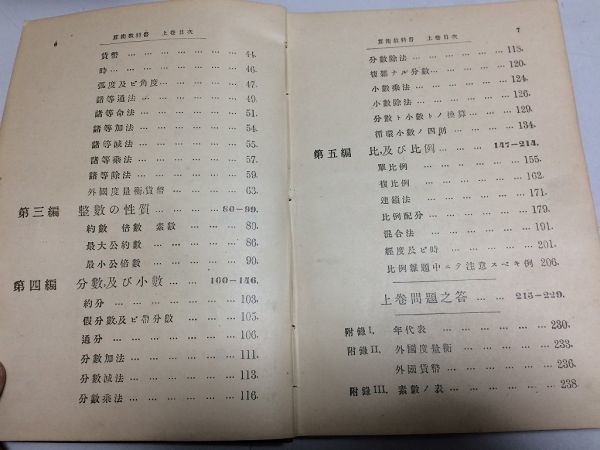 6 算術教科書 上卷目次
貨幣 … … … … … … … 44.
時 … … … … … … … … 46.
弧度及ビ角度 … … … … … 47.
諸等通法 … … … … … … 49.
諸等命法 … … … … … … 51.
諸等加法 … … … … … … 54.
諸等減法 … … … … … … 55.
諸等乘法 … … … … … … 57.
諸等除法 … … … … … … 59.
外國度量衡,貨幣 … … … … 63.
第三編 整數の性質 … … … … 80-99.
約數 倍數 素數 … … … 80.
最大公約數 … … … … … 86.
最小公倍數 … … … … … 90.
第四編 分數,及び小數 … … … 100-146.
約分 … … … … … … … 103.
假分數,及ビ帶分數 … … … … 105.
通分 … … … … … … … 106.
分數加法 … … … … … … 111.
分數減法 … … … … … … 113.
分數乘法 … … … … … … 116.
算術教科書 上卷目次 7
分數除法 … … … … … … 118.
複雜ナル分數 … … … … … 120.
小數乘法 … … … … … … 124.
小數除法 … … … … … … 126.
分數ト小數トノ換算 … … … 129.
循環小數ノ四則 … … … … 134.
第五編 比,及び比例 … … … 147-214.
單比例 … … … … … … 155.
複比例 … … … … … … 162.
連鎖法 … … … … … … 171.
比例配分 … … … … … … 179.
混合法 … … … … … … 191.
經度及ビ時 … … … … … 201.
比例雜題中ニテ注意スベキ例 206.
上卷問題之答 … … … 215-229.
附錄 I. 年代表 … … … … … 230.
附錄 II. 外國度量衡 … … … … 233.
外國貨幣 … … … … … 236.
附錄 III. 素數ノ表 … … … … 238.